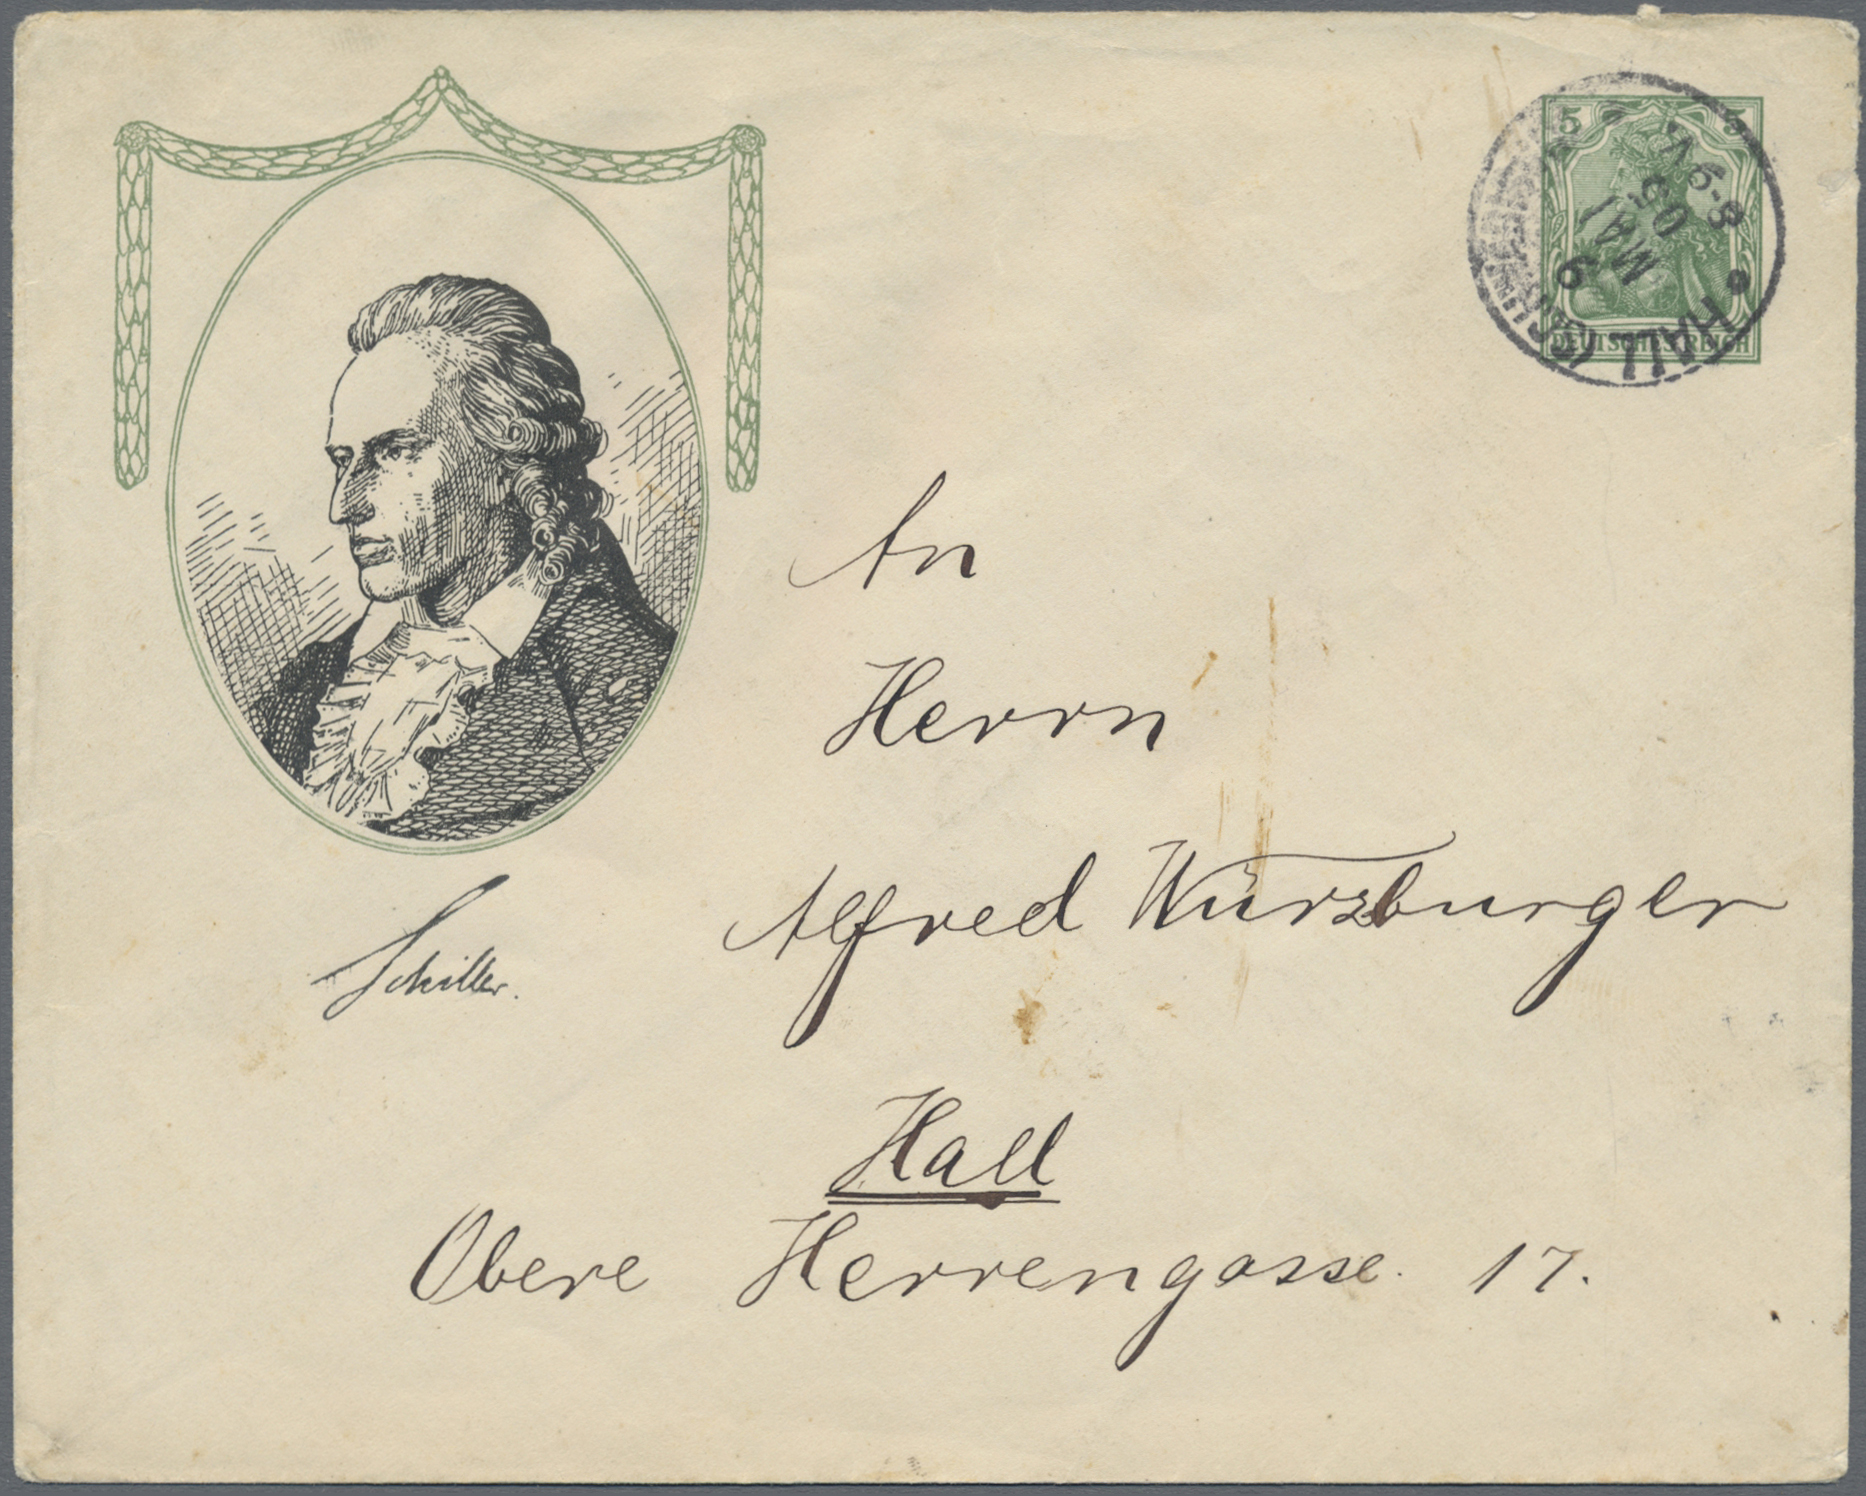 5 5
DEUTSCHES REICH
HALL (SCHWÄB.
9
MAI
05
8-9 V.
An
Herrn
Alfred Würzburger
Schiller.
Hall
Obere Herrengasse. 17.